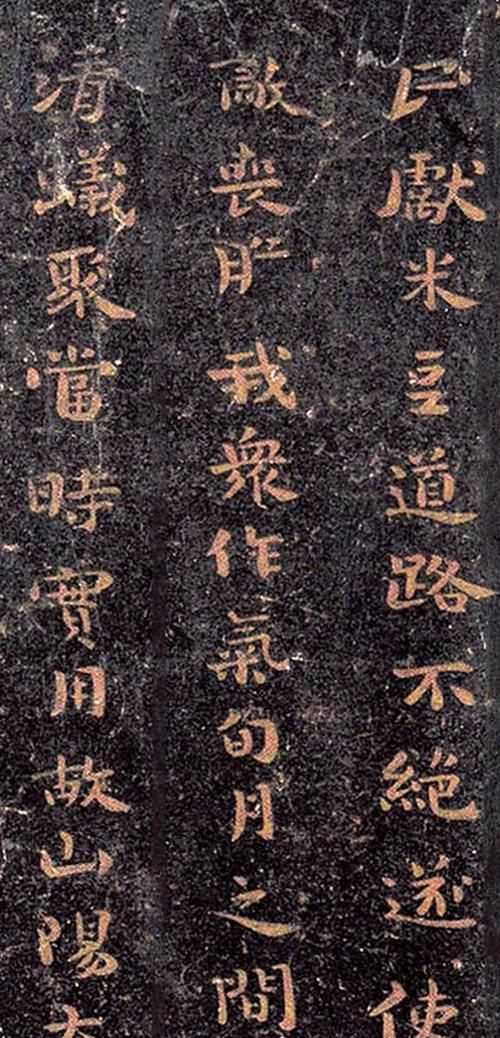 民獻米豆道路不絕遂使
敵喪膽我衆作氣旬月之間
清蟻聚當時實用故山陽太